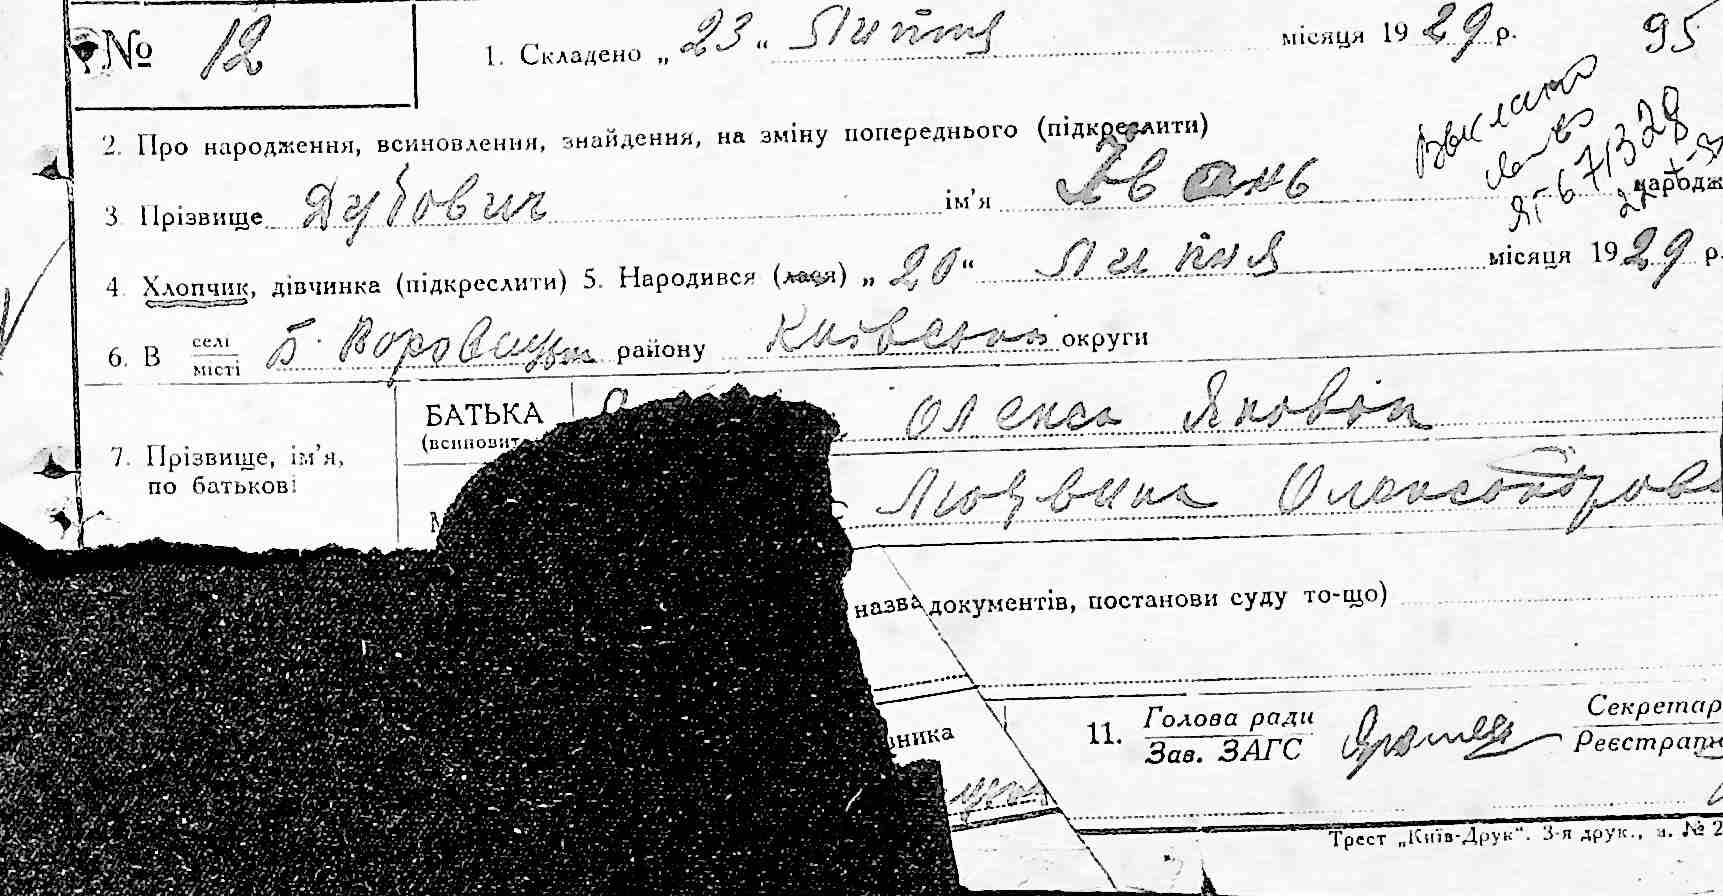 № 12
1. Складено „23“ Липня місяця 1929 р. 95
2. Про народження, всиновлення, знайдення, на зміну попереднього (підкреслити)
3. Прізвище Дубович ім'я Івань народж
ЯТ 671328
4. Хлопчик, дівчинка (підкреслити) 5. Народився (лася) „20“ Липня місяця 1929 р.
6. В селі місті району Київської округи
7. Прізвище, ім'я, по батькові
БАТЬКА Олекса Яковіч
(всиновит
Олександров
назва документів, постанови суду то-що)
вника
11. Голова ради
Зав. ЗАГС
Секретар
Реєстрато
Трест „Київ-Друк“. 3-я друк., з. № 2